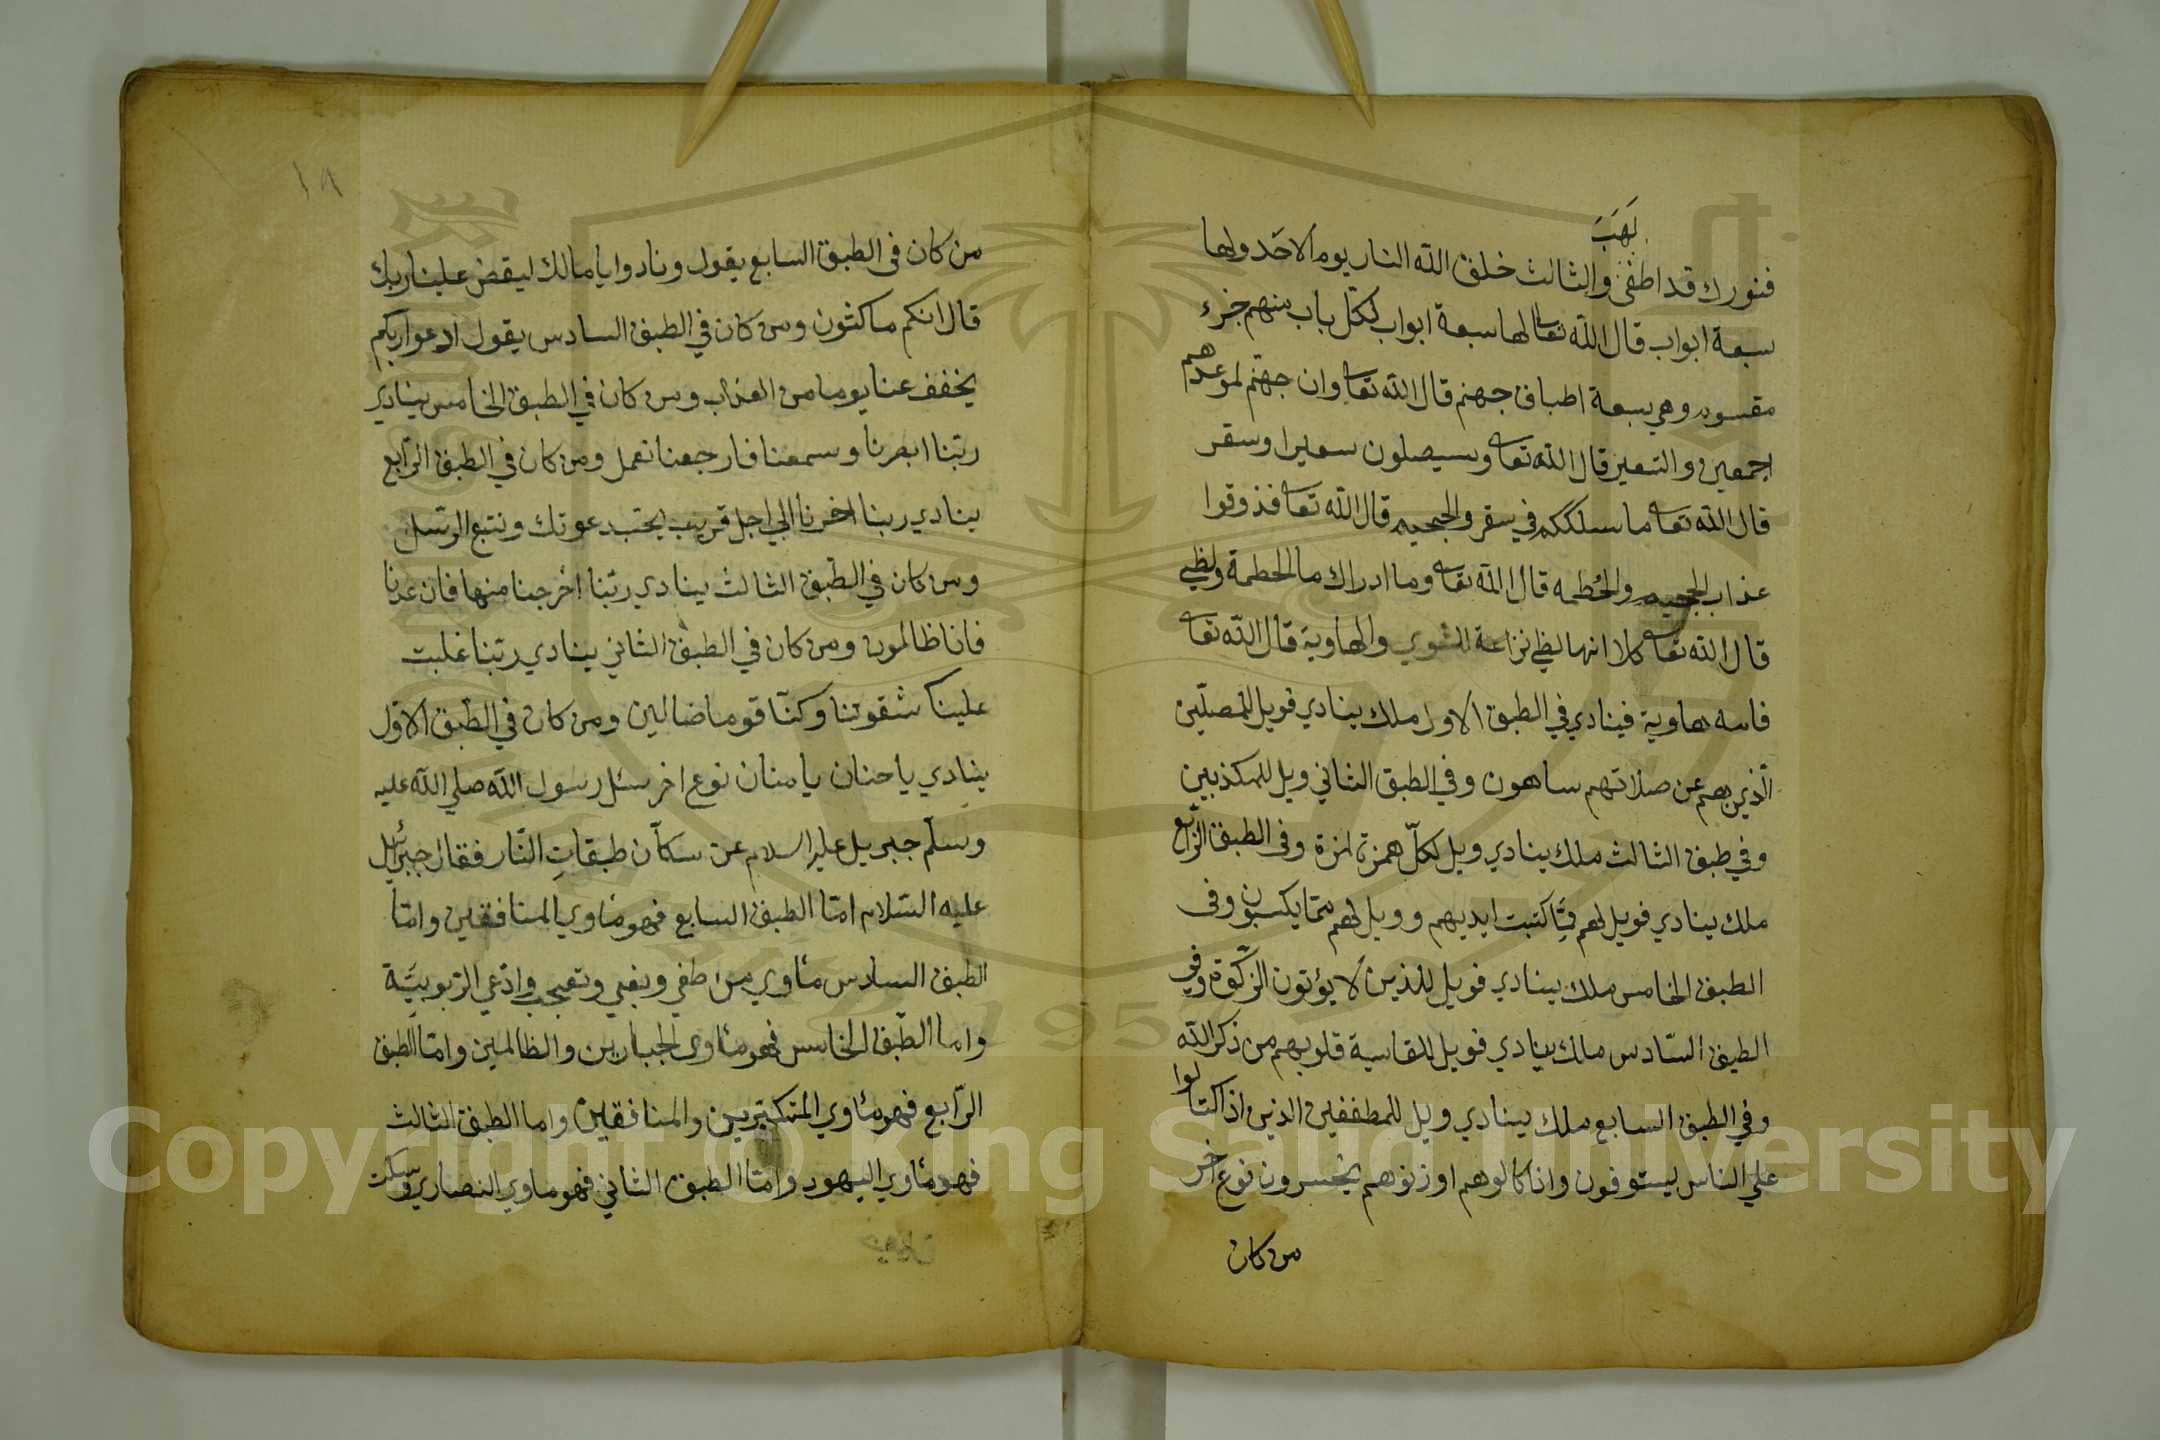 لَهَبَ
فنورك قد اطفئ والثالث خلق الله النار يوم الاحد ولها
سبعة ابواب قال الله تعا لها سبعة ابواب لكل باب منهم جزء
مقسوم وهي سبعة اطباق جهنم قال الله تعا وان جهنم لموعدهم
اجمعين والسعير قال الله تعا وسيصلون سعيرا وسقر
قال الله تعا ما سلككم في سقر والجحيم قال الله تعا فذوقوا
عذاب الجحيم والحُطمه قال الله تعا وما ادراك ما الحطمة ولظي
قال الله تعا كلا انها لظي نزاعة للشوي والهاوية قال الله تعا
فامه هاوية فينادي في الطبق الاول ملك ينادي فويل للمصلّين
الّذين هم عن صلاتهم ساهون وفي الطبق الثاني ويل للمكذبين
وفي طبق الثالث ملك ينادي ويل لكلّ همزة لمزة وفي الطبق الرّابع
ملك ينادي فويل لهم ممّا كتبت ايديهم وويل لهم ممّا يكسبون وفي
الطبق الخامس ملك ينادي فويل للذين لا يؤتون الزّكوة وفي
الطبق السّادس ملك ينادي فويل للقاسية قلوبهم من ذكر الله
وفي الطبق السابع ملك ينادي ويل للمطففين الذين اذا اكتالوا
علي الناس ليستوفون واذا كالوهم او زنوهم يخسرون نوع اخر
من كان
١٩
من كان في الطبق السابع يقول ونادوا يا مالك ليقض علينا ربك
قال انكم ماكثون ومن كان في الطبق السادس يقول ادعوا ربكم
يخفف عنا يوما من العذاب ومن كان في الطبق الخامس ينادي
ربّنا ابصرنا وسمعنا فارجعنا نعمل ومن كان في الطبق الرّابع
ينادي ربنا اخرنا الي اجل قريب نجتب دعوتك ونتبع الرّسل
ومن كان في الطبق الثالث ينادي ربّنا اخرجنا منها فان عدنا
فانا ظالمون ومن كان في الطبق الثاني ينادي ربّنا غلبت
علينا شقوتنا وكنّا قوما ضالين ومن كان في الطّبق الاوّل
ينادي يا حنان يا منان نوع اخر سئل رسول الله صلي الله عليه
وسلّم جبريل عليه السلام عن سكاّن طبقاتِ النّار فقال جبرائيل
عليه السّلام امّا الطبق السابع فهو مأوي المنافقين وامّا
الطبق السادس مأوي من طغي وبغي وتعجب وادّعي الرّبوبيّة
واما الطّبق الخامس فهو مأوى الجبارين والظالمين وامّا الطبق
الرّابع فهو مأوي المتكبّرين والمنافقين واما الطبق الثالث
فهو مأوي اليهود وامّا الطبق الثاني فهو ماوي النصاري وسكت
Copyright © King Saud University
1957